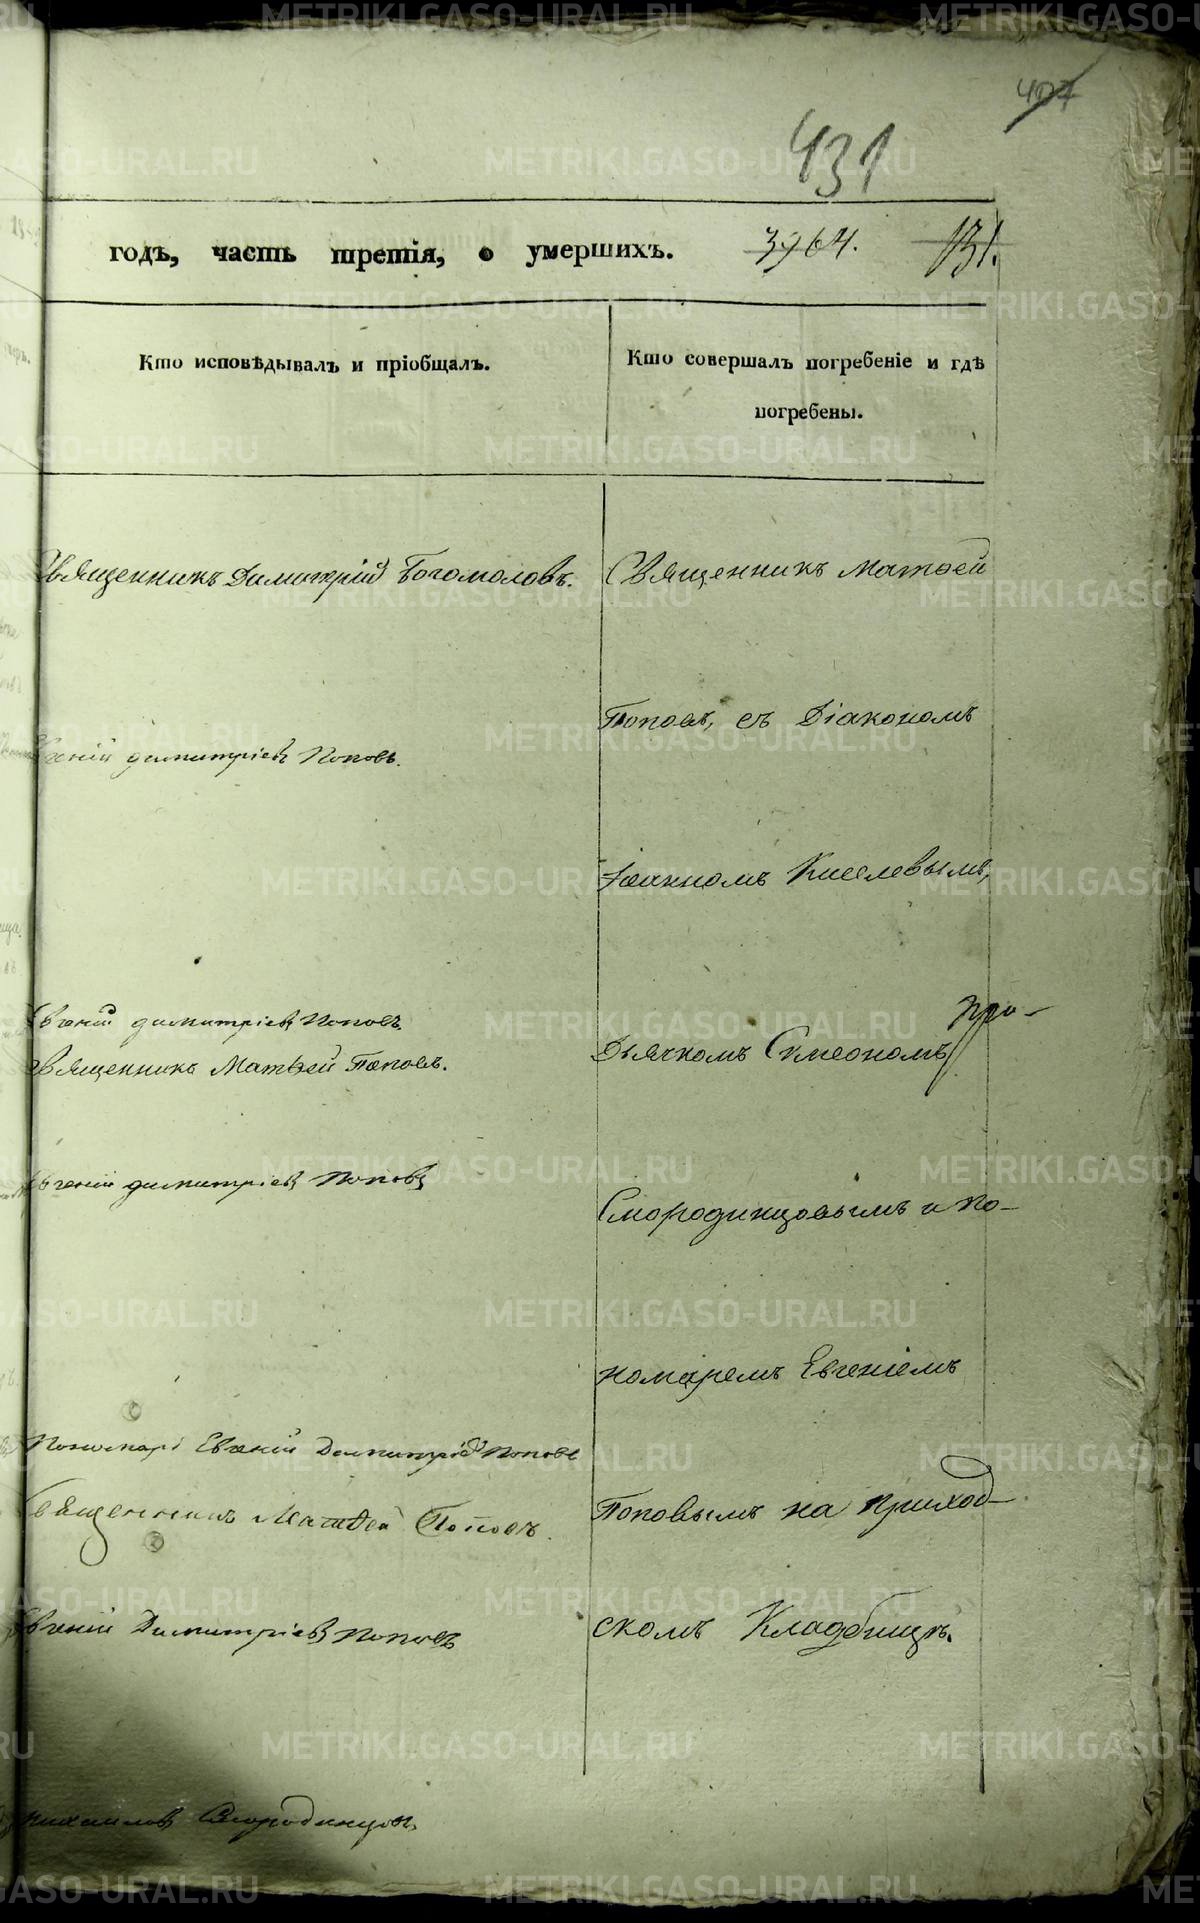 407
431
годъ, часть третія, о умершихъ.
3964. 131.
Кто исповѣдывалъ и пріобщалъ.
Кто совершалъ погребеніе и гдѣ
погребены.
Священникъ Димитрій Богомоловъ.
Священникъ Матѳей
Поповъ, съ Діакономъ
Евгеній Димитріевъ Поповъ.
Іоанномъ Киселевымъ,
Евгеній Димитріевъ Поповъ
Священникъ Матѳей Поповъ.
При-
Дьячкомъ Симеономъ
Евгеній Димитріевъ Поповъ
Смородинцовымъ и по-
номаремъ Евгеніемъ
Пономарь Евгеній Димитріевъ Поповъ
Священникъ Матѳей Поповъ.
Поповымъ на приход-
скомъ Кладбищѣ.
Евгеній Димитріевъ Поповъ
Михаиловъ Смородинцовъ
METRIKI.GASO-URAL.RU